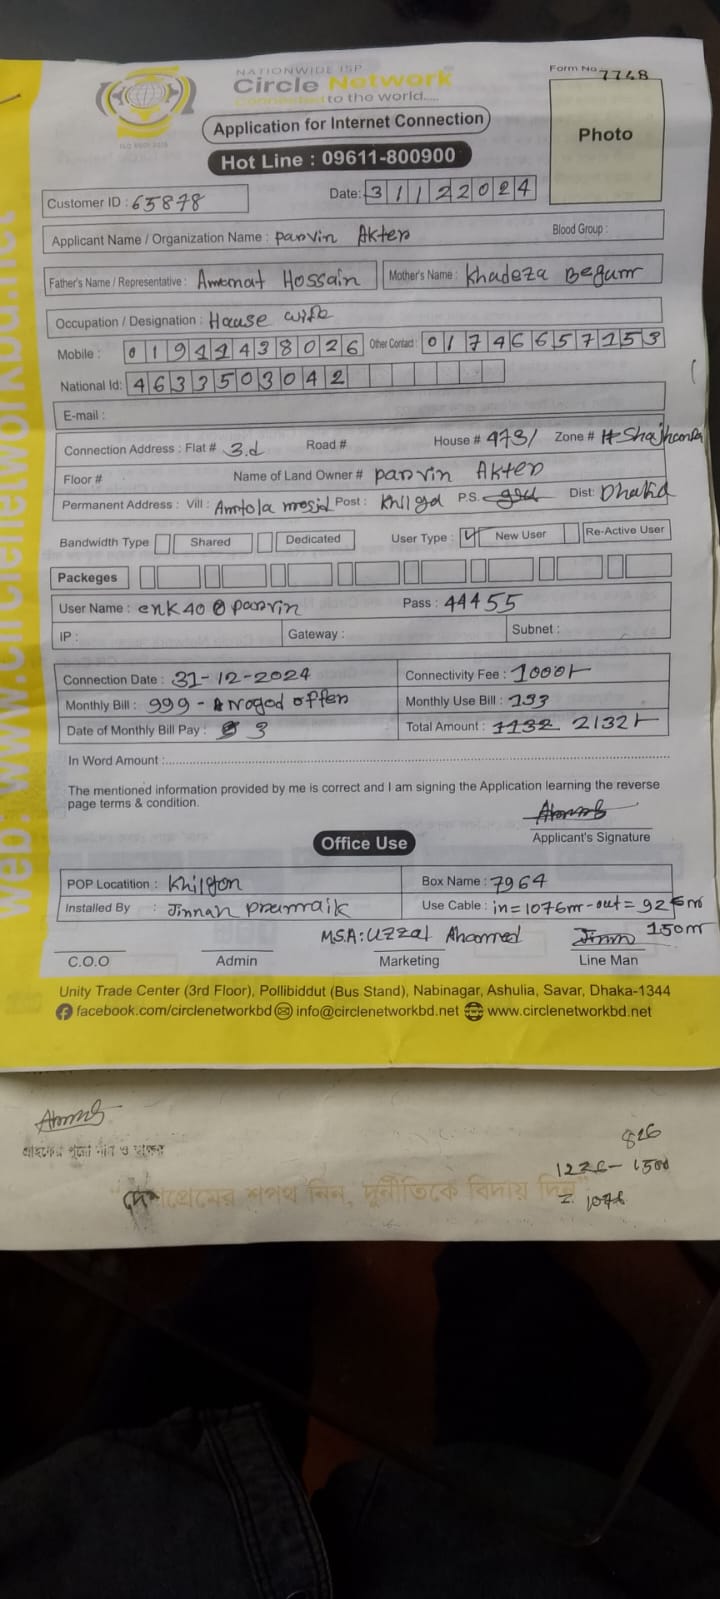 NATIONWIDE ISP
Circle Network
Connected to the world.....
ISO 9001:2015
Form No 7768
Application for Internet Connection
Photo
Hot Line : 09611-800900
Customer ID : 65878
Date: 31122024
Applicant Name / Organization Name : parvin Akter
Blood Group :
Father's Name / Representative : Amanat Hossain
Mother's Name : Khadeza Begum
Occupation / Designation : House wife
Mobile : 01944438026 Other Contact : 01746657153
National Id: 4633503042
E-mail :
Connection Address : Flat # 3.d Road # House # 473/ Zone #
Floor # Name of Land Owner # parvin Akter
Permanent Address : Vill : Amtola mosjid Post : Khilga P.S. Dist: Dhaka
Bandwidth Type Shared Dedicated User Type : New User Re-Active User
Packeges
User Name : enk40@parvin Pass : 44455
IP : Gateway : Subnet :
Connection Date : 31-12-2024 Connectivity Fee : 1000/-
Monthly Bill : 999 - Nogod offer Monthly Use Bill : 133
Date of Monthly Bill Pay : 3 Total Amount : 1132 2132/-
In Word Amount :
The mentioned information provided by me is correct and I am signing the Application learning the reverse
page terms & condition.
Applicant's Signature
Office Use
POP Locatition : Khilgon Box Name : 7964
Installed By : Jinnah pramaik Use Cable : in=1076m-out=926m
150m
M.S.A: Uzzal Ahamed
C.O.O Admin Marketing Line Man
Unity Trade Center (3rd Floor), Pollibiddut (Bus Stand), Nabinagar, Ashulia, Savar, Dhaka-1344
facebook.com/circlenetworkbd info@circlenetworkbd.net www.circlenetworkbd.net
web: www.circlenetworkbd.net
826
1226- 1500
= 1076
দেশপ্রেমের শপথ নিন, দুর্নীতিকে বিদায় দিন"